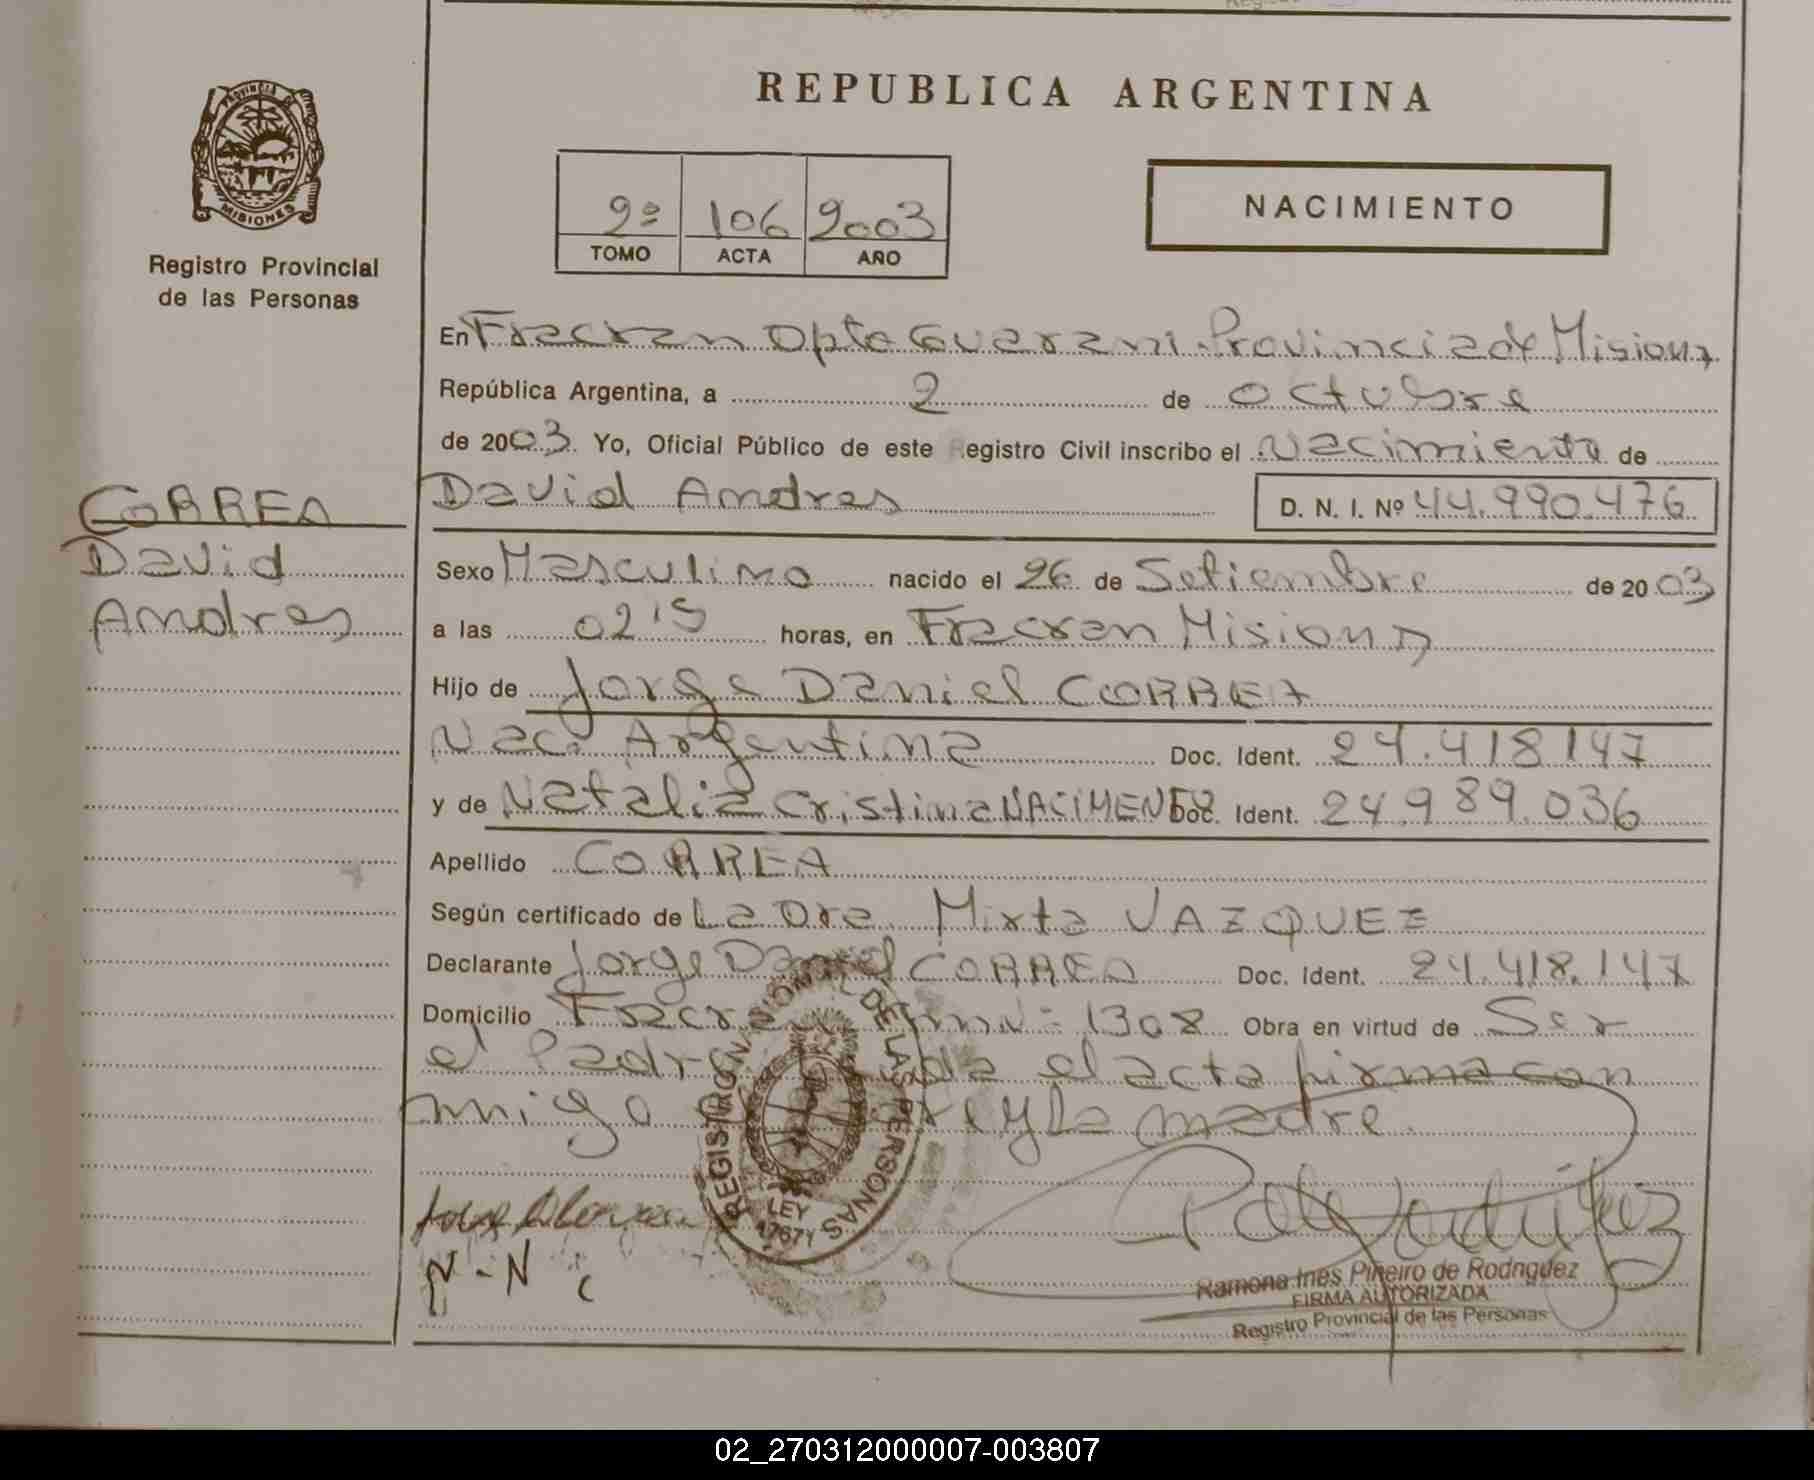 REPUBLICA ARGENTINA
PROVINCIA DE
MISIONES
Registro Provincial
de las Personas
2º 106 2003
TOMO ACTA AÑO
NACIMIENTO
En Fracran Dpto Guarani Provincia de Misiones
República Argentina, a 2 de Octubre
de 2003. Yo, Oficial Público de este Registro Civil inscribo el Nacimiento de
David Andres D. N. I. Nº 44.990.476
CORREA
David
Andres
Sexo Masculino nacido el 26 de Setiembre de 2003
a las 02'15 horas, en Fracran Misiones
Hijo de Jorge Daniel CORREA
Nac. Argentina Doc. Ident. 24.418147
y de Natalia Cristina NACIMENTO Doc. Ident. 24.989.036
Apellido CORREA
Según certificado de La Dra Mirta VAZQUEZ
Declarante Jorge Daniel CORREA Doc. Ident. 24.418.147
Domicilio Fracran Nº 1308 Obra en virtud de Ser
el Padre el acta firma con
migo y la madre.
REGISTRO NACIONAL DE LAS PERSONAS
LEY
17671
N-N
Ramona Inés Piñeiro de Rodriguez
FIRMA AUTORIZADA
Registro Provincial de las Personas
02_270312000007-003807